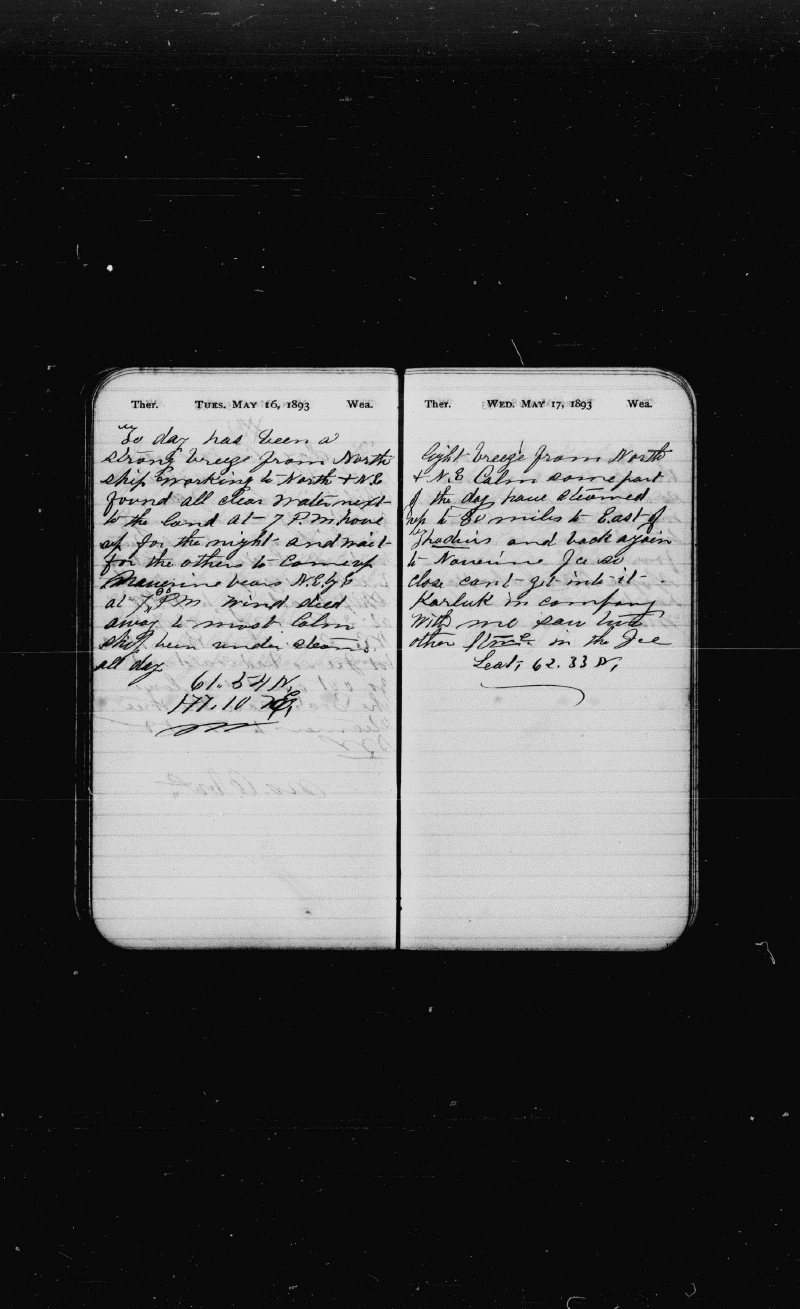 Ther. TUES. MAY 16, 1893 Wea.
To day has been a
strong breeze from North
ship working to North + N.E
found all clear water next
to the land at 7 P.M hove
up for the night and wait
for the others to come up
bears N.E. by E
at 7 P.M wind died
away to most Calm
ship been under steam
all day
61.54 N,
177.10
Ther. WED. MAY 17, 1893 Wea.
light breeze from North
+ N.E Calm some part
of the day have steamed
up to 30 miles to East of
and back again
to Navarine Ice so
close cant get into it.
Karluk in company
with me saw two
other in the Ice
Leat, 62.33 N,